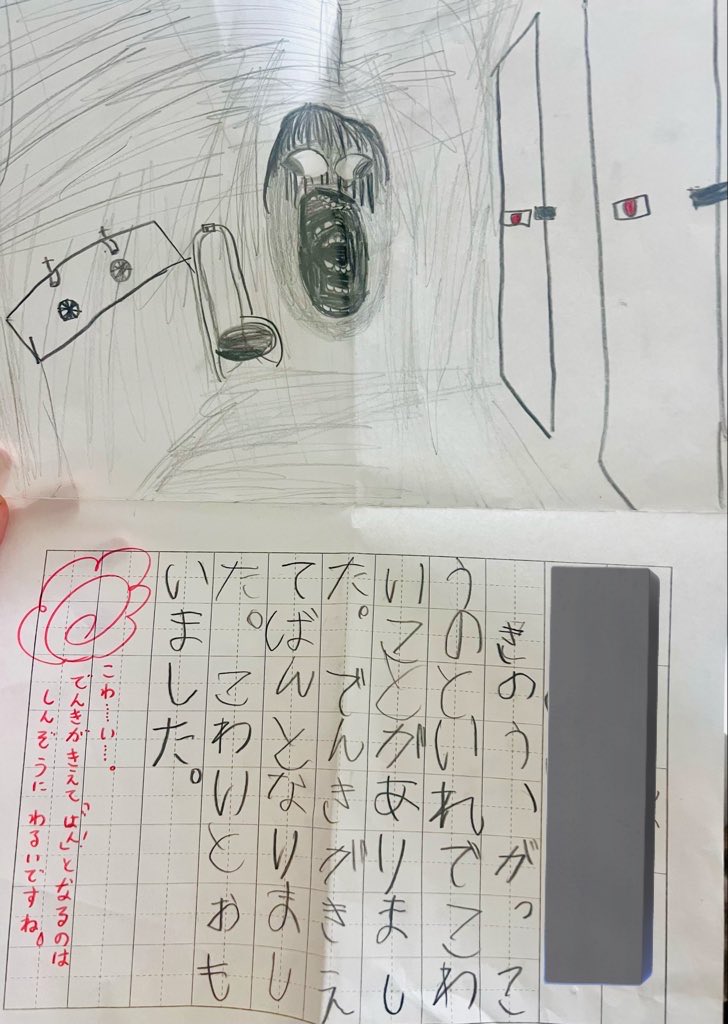 きのう、がっこ
うのといれでこわ
いことがありまし
た。でんきがきえ
てばんとなりまし
た。こわいとおも
いました。
こわ…い…。
でんきがきえて「ばん」となるのは
しんぞうに わるいですね。